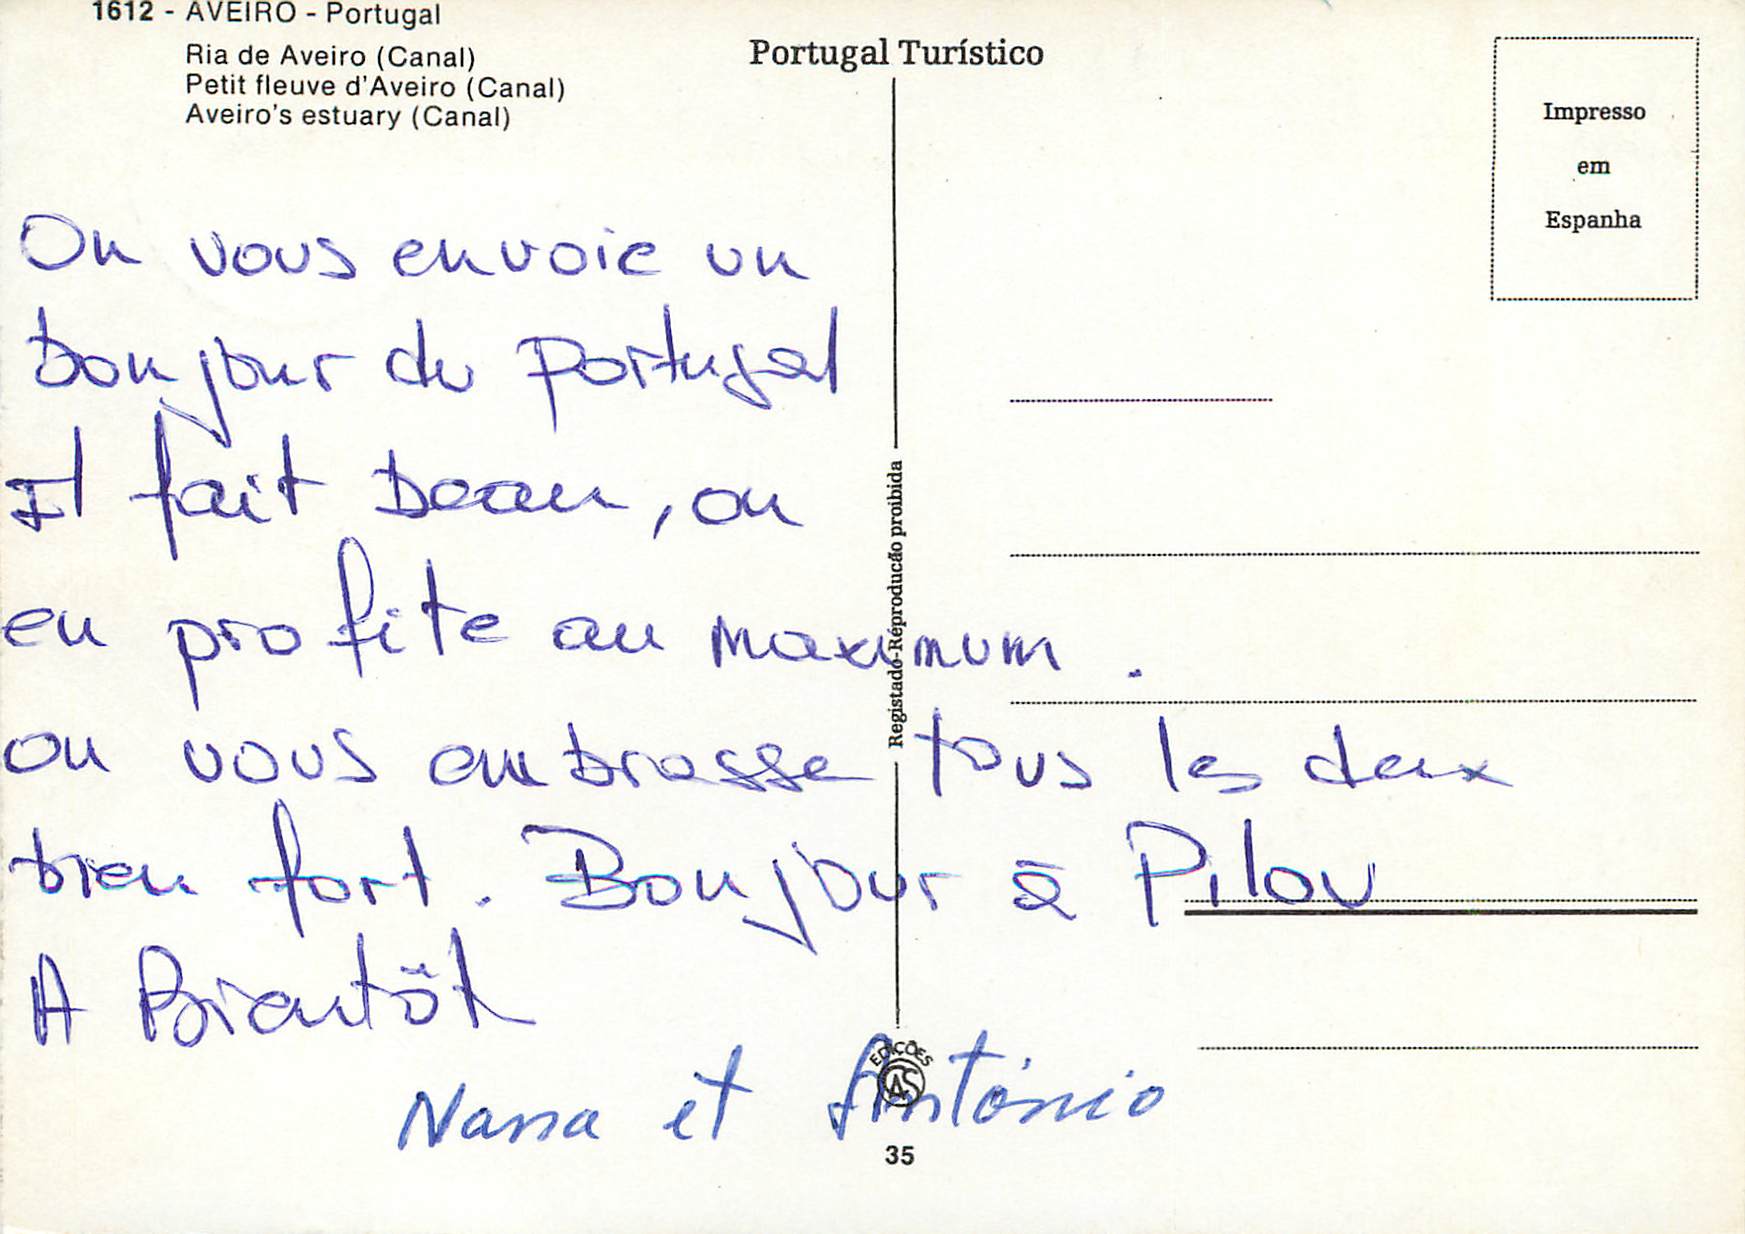 1612 - AVEIRO - Portugal
Ria de Aveiro (Canal)
Petit fleuve d'Aveiro (Canal)
Aveiro's estuary (Canal)
Portugal Turístico
Impresso
em
Espanha
On vous envoie un
bonjour du Portugal
Il fait beau, on
en profite au maximum.
on vous embrasse tous les deux
bien fort. Bonjour à Pilou
A Bientôt
Nana et António
Registado-Réproducão proibida
EDIÇÕES
AS
35